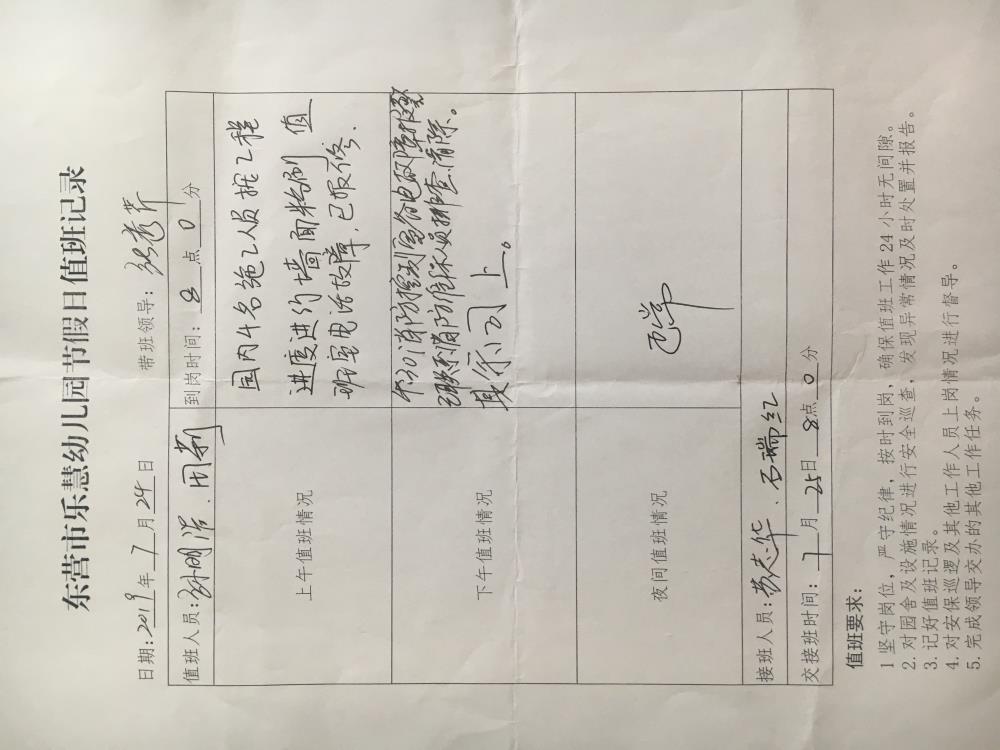 东营市乐慧幼儿园节假日值班记录
日期:2019年 7月24日 带班领导:
值班人员:孙明洋、闫莉 到岗时间: 8 点 0 分
上午值班情况
园内4名施工人员按工程
进度进行墙面粉刷 值
班室电话故障,已报修.
下午值班情况
消防控制室
消防维保人员排查清除。
夜间值班情况
正常
接班人员:黄志华、石瑞红
交接班时间: 7 月 25日 8点 0 分
值班要求:
1 坚守岗位,严守纪律,按时到岗,确保值班工作24小时无间隙。
2. 对园舍及设施情况进行安全巡查,发现异常情况及时处置并报告。
3. 记好值班记录。
4. 对安保巡逻及其他工作人员上岗情况进行督导。
5. 完成领导交办的其他工作任务。